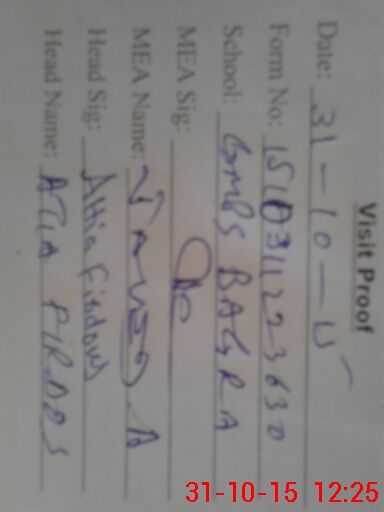 Visit Proof
Date: 31-10-15
Form No: 1510311223630
School: GMPS BAGRA
MEA Sig:
MEA Name: JAVED. A
Head Sig: Attia Firdous
Head Name: ATIA FIRDOS
31-10-15 12:25